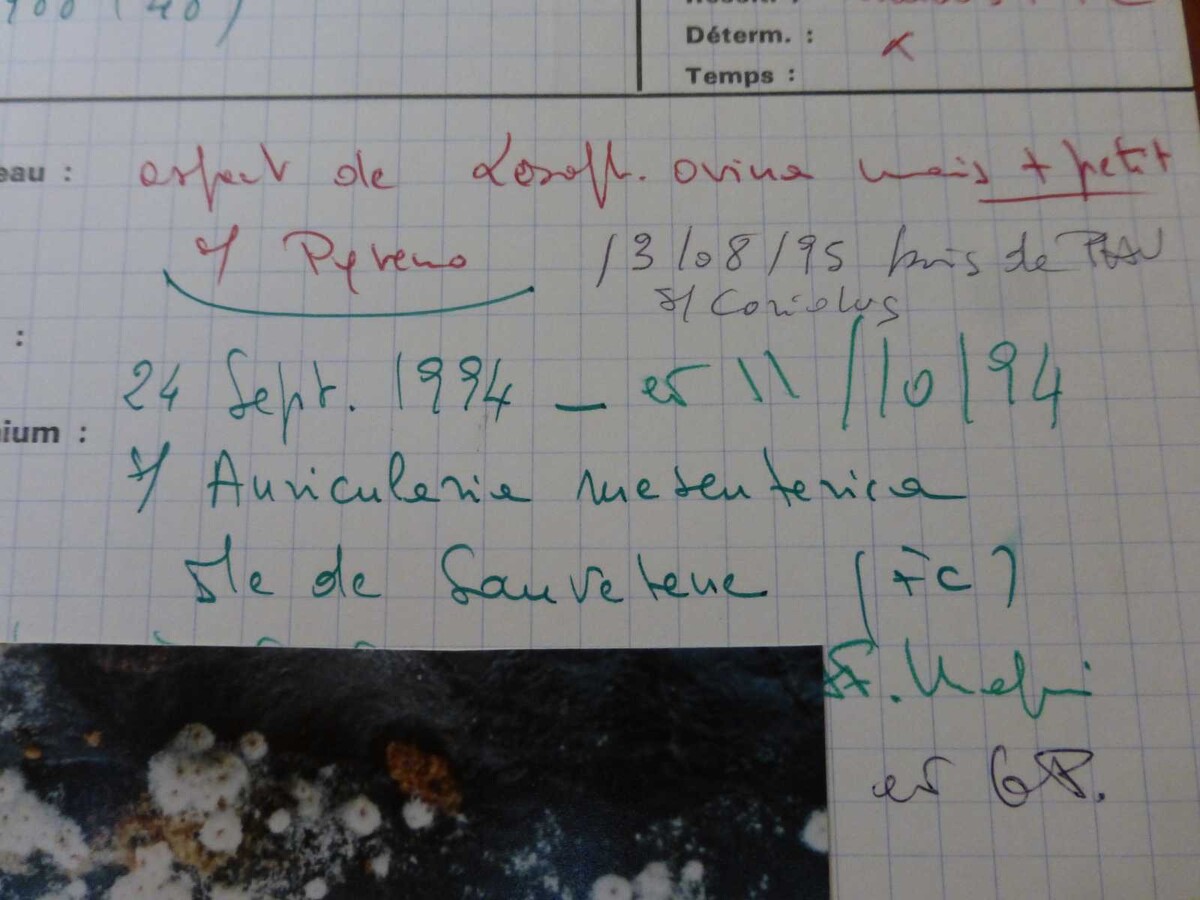 Déterm. :
Temps :
eau : aspect de Lasioph. ovina mais + petit
s/ Pyreno 13/08/95 bois de PAU
s/ Coriolus
:
24 Sept. 1994 — et 11/10/94
ium :
s/ Auricularia mesenterica
Ile de Sauveterre (FC)
et GP.